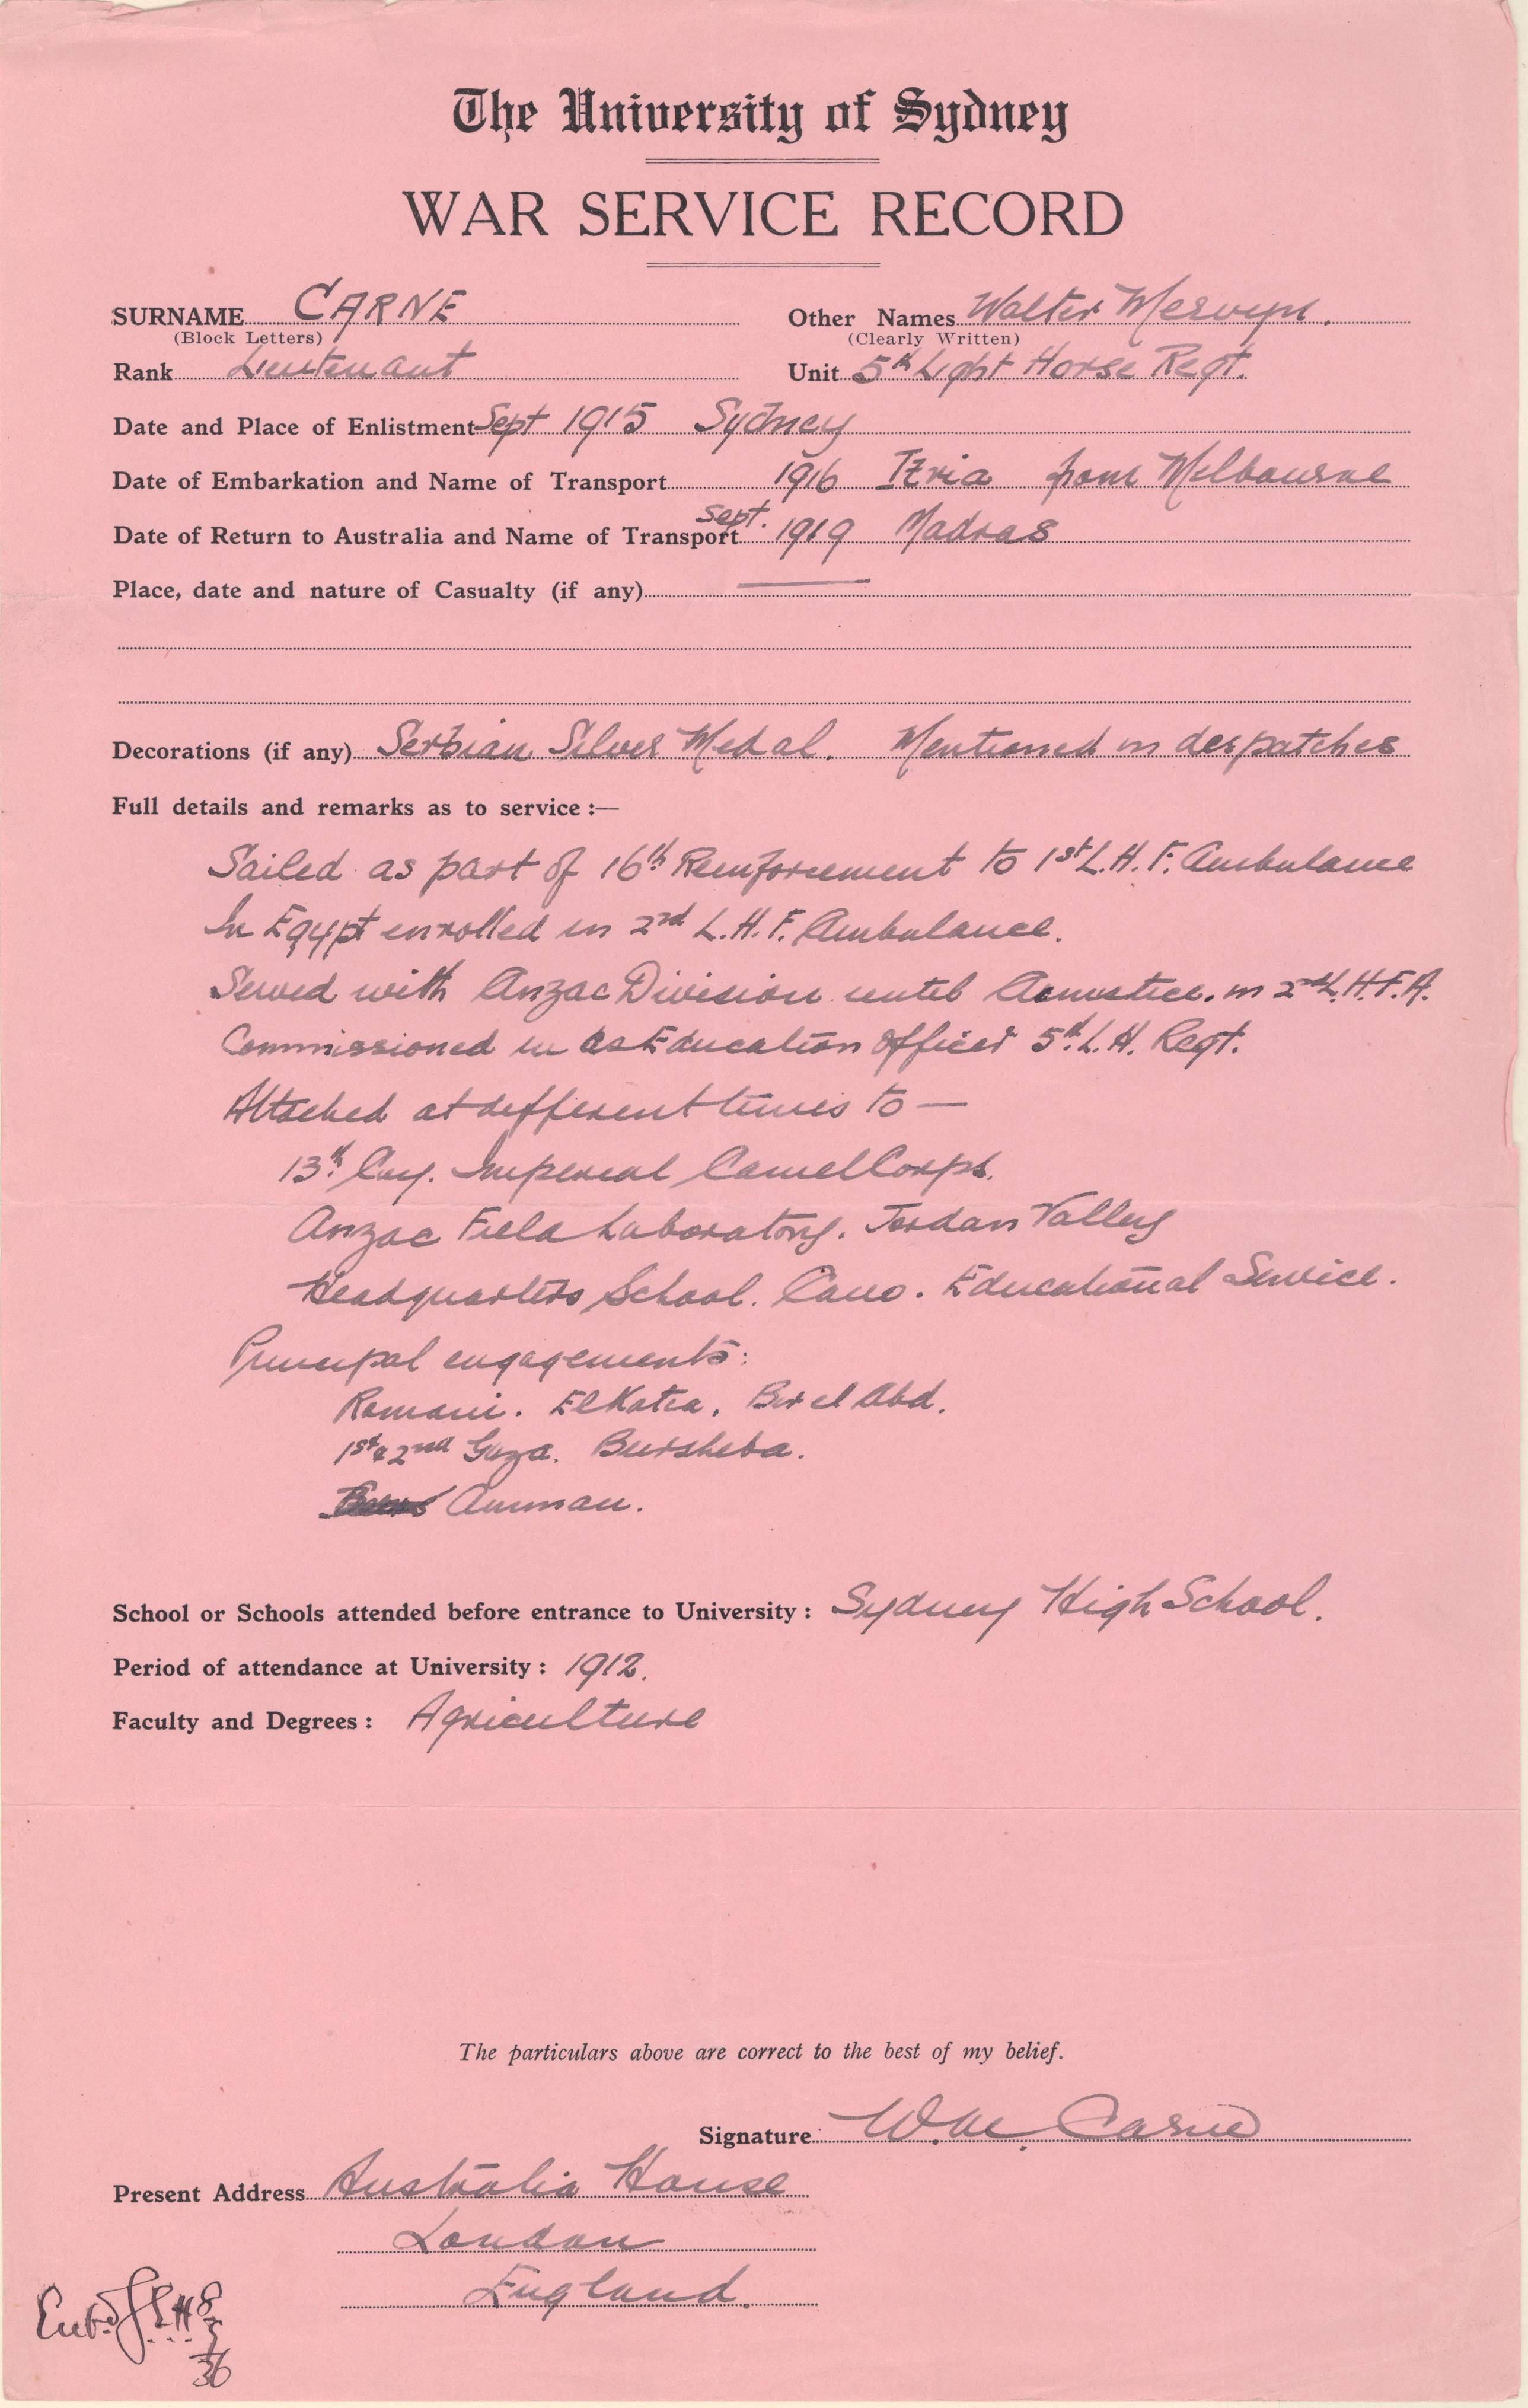 The University of Sydney
WAR SERVICE RECORD
SURNAME CARNE Other Names Walter Mervyn.
(Block Letters) (Clearly Written)
Rank Lieutenant Unit 5th Light Horse Regt.
Date and Place of Enlistment Sept 1915 Sydney
Date of Embarkation and Name of Transport 1916 from Melbourne
Date of Return to Australia and Name of Transport Sept. 1919 Madras
Place, date and nature of Casualty (if any) —
Decorations (if any) Serbian Silver Medal. Mentioned in despatches
Full details and remarks as to service :—
Sailed as part of 16th Reinforcement to 1st L.H.F. Ambulance
In Egypt enrolled in 2nd L.H.F. Ambulance.
Served with Anzac Division until Armistice. in 2nd L.H.F.A.
Commissioned in as Education Officer 5th L.H. Regt.
Attached at different times to —
13th Coy. Imperial Camel Corps.
Anzac Field Laboratory. Jordan Valley
Headquarters School. Cairo. Educational Service.
Principal engagements:
Romani. El Katia. Bir el Abd.
1st & 2nd Gaza. Beersheba.
Amman.
School or Schools attended before entrance to University : Sydney High School.
Period of attendance at University : 1912.
Faculty and Degrees : Agriculture
The particulars above are correct to the best of my belief.
Signature W.M. Carne
Present Address Australia House
London
England.
8
3
36